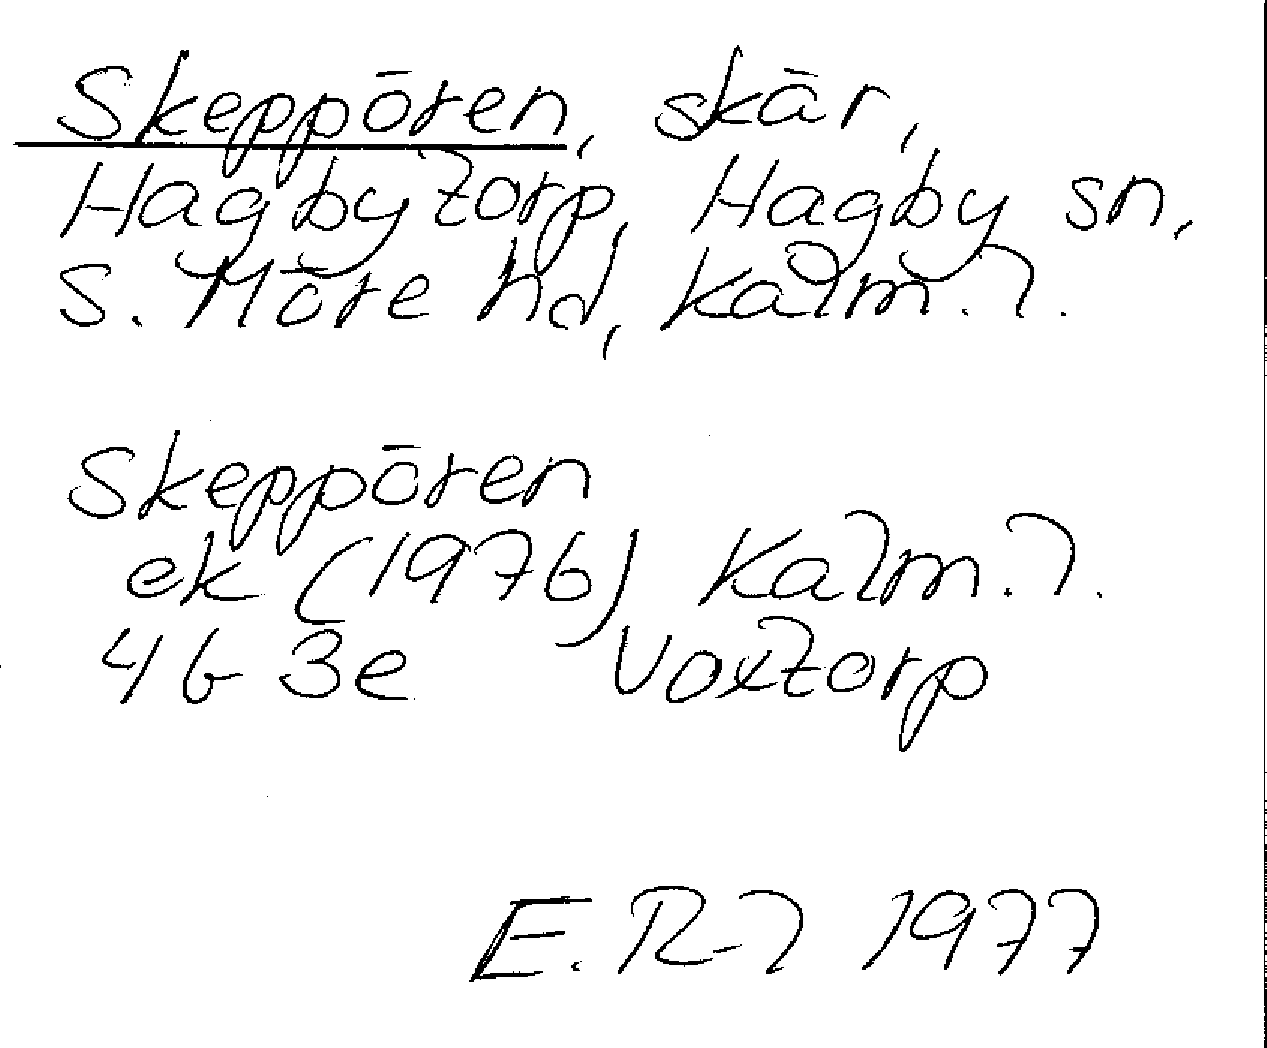 Skeppören, skär,
Hagbytorp, Hagby sn,
S. Möre hd, Kalm. l.
Skeppören
ek (1976) Kalm. l.
4 G 3e Voxtorp
E. R-l 1977